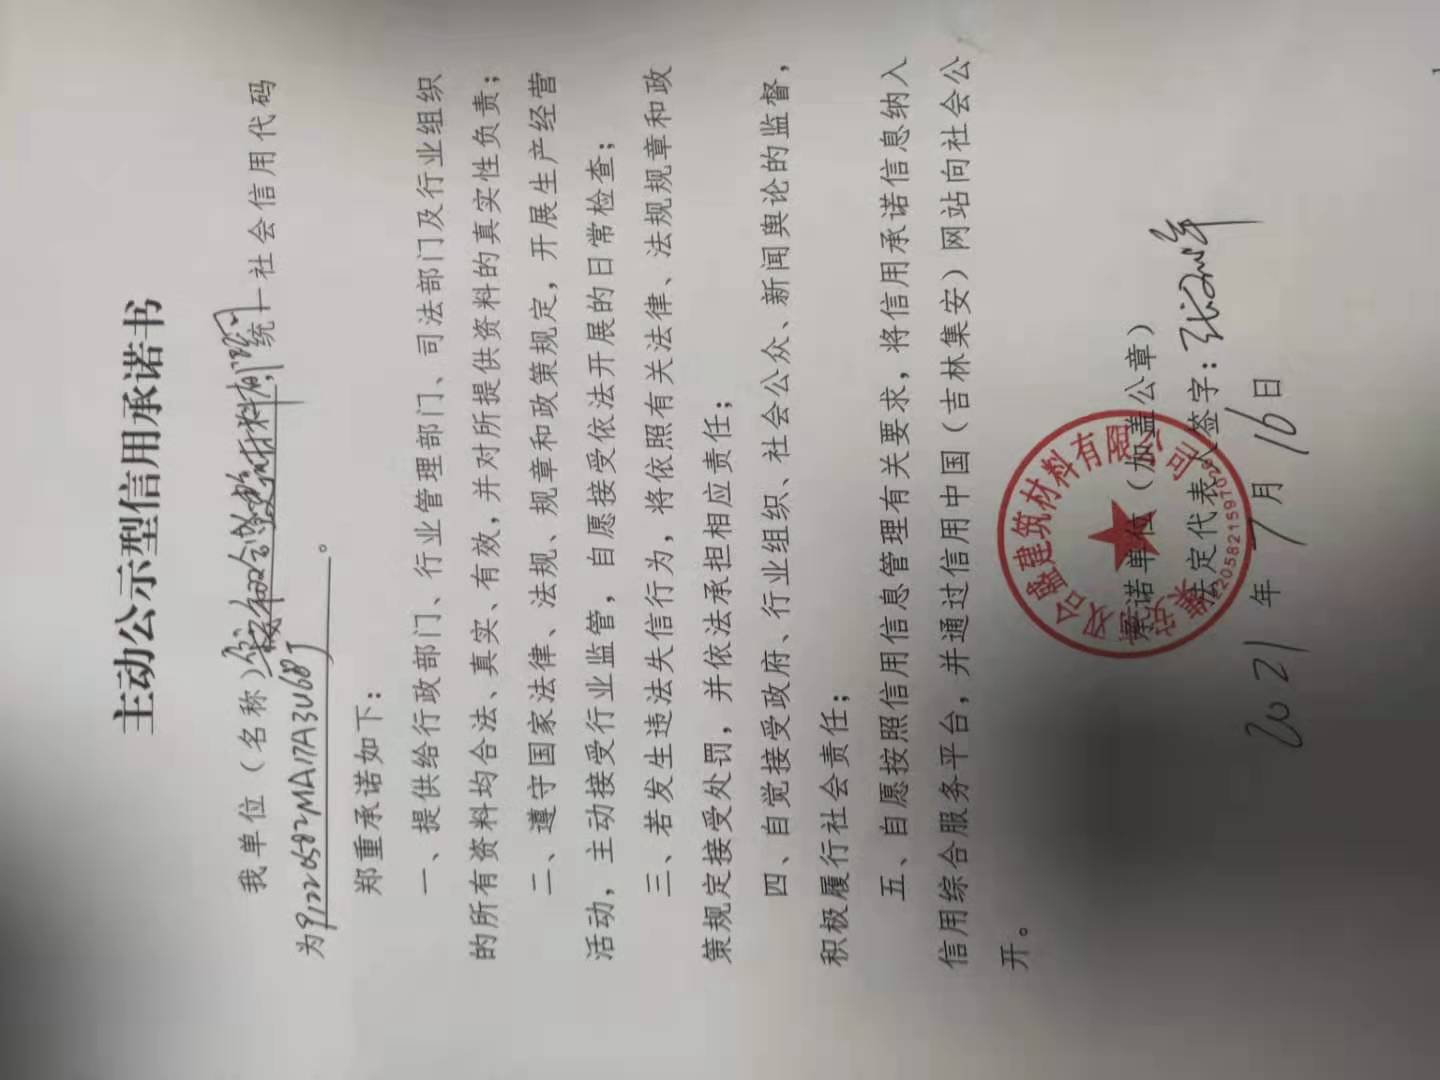 主动公示型信用承诺书
我单位（名称）集安市双合盛建筑材料有限公司统一社会信用代码
为91220582MA17A3U68J。
郑重承诺如下：
一、提供给行政部门、行业管理部门、司法部门及行业组织
的所有资料均合法、真实、有效，并对所提供资料的真实性负责；
二、遵守国家法律、法规、规章和政策规定，开展生产经营
活动，主动接受行业监管，自愿接受依法开展的日常检查；
三、若发生违法失信行为，将依照有关法律、法规规章和政
策规定接受处罚，并依法承担相应责任；
四、自觉接受政府、行业组织、社会公众、新闻舆论的监督，
积极履行社会责任；
五、自愿按照信用信息管理有关要求，将信用承诺信息纳入
信用综合服务平台，并通过信用中国（吉林集安）网站向社会公
开。
承诺单位（加盖公章）
法定代表（签字：
2021年7月16日
双合盛建筑材料有限公司